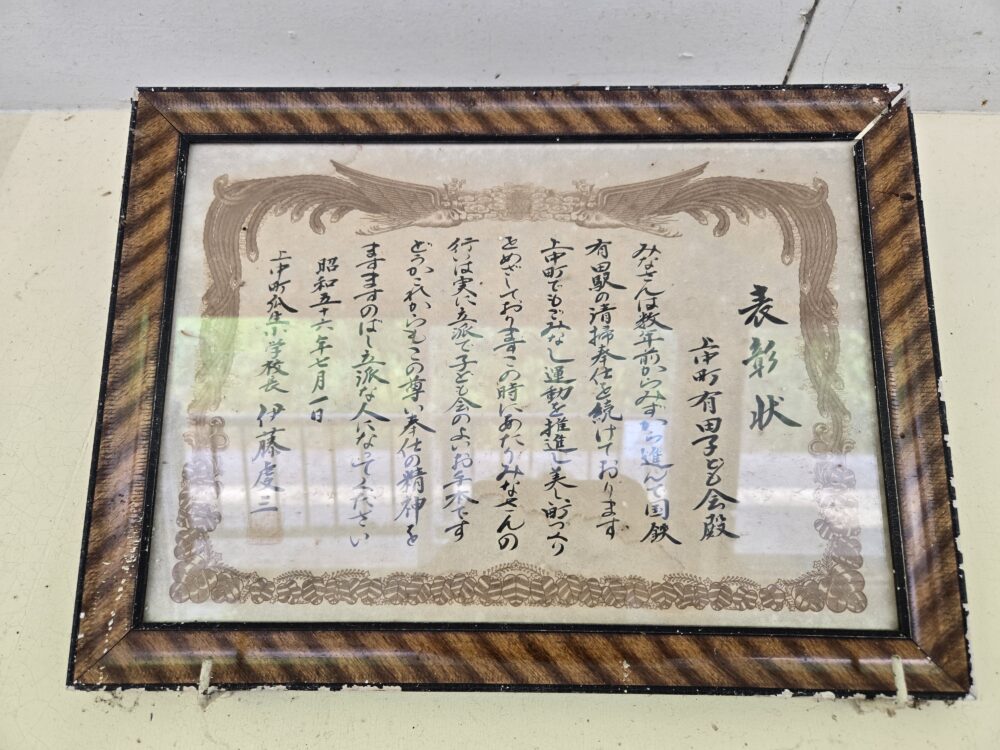 表彰状
上中町有田子ども会殿
みなさんは数年前からみずから進んで国鉄
有田駅の清掃奉仕を続けております
上中町でもごみなし運動を推進し美し町つくり
をめざしておりますこの時にあたりみなさんの
行いは実に立派で子ども会のよいお手本です
どうかこれからもこの尊い奉仕の精神を
ますますのばし立派な人になってください
昭和五十六年七月一日
上中町瓜生小学校長 伊藤虔三